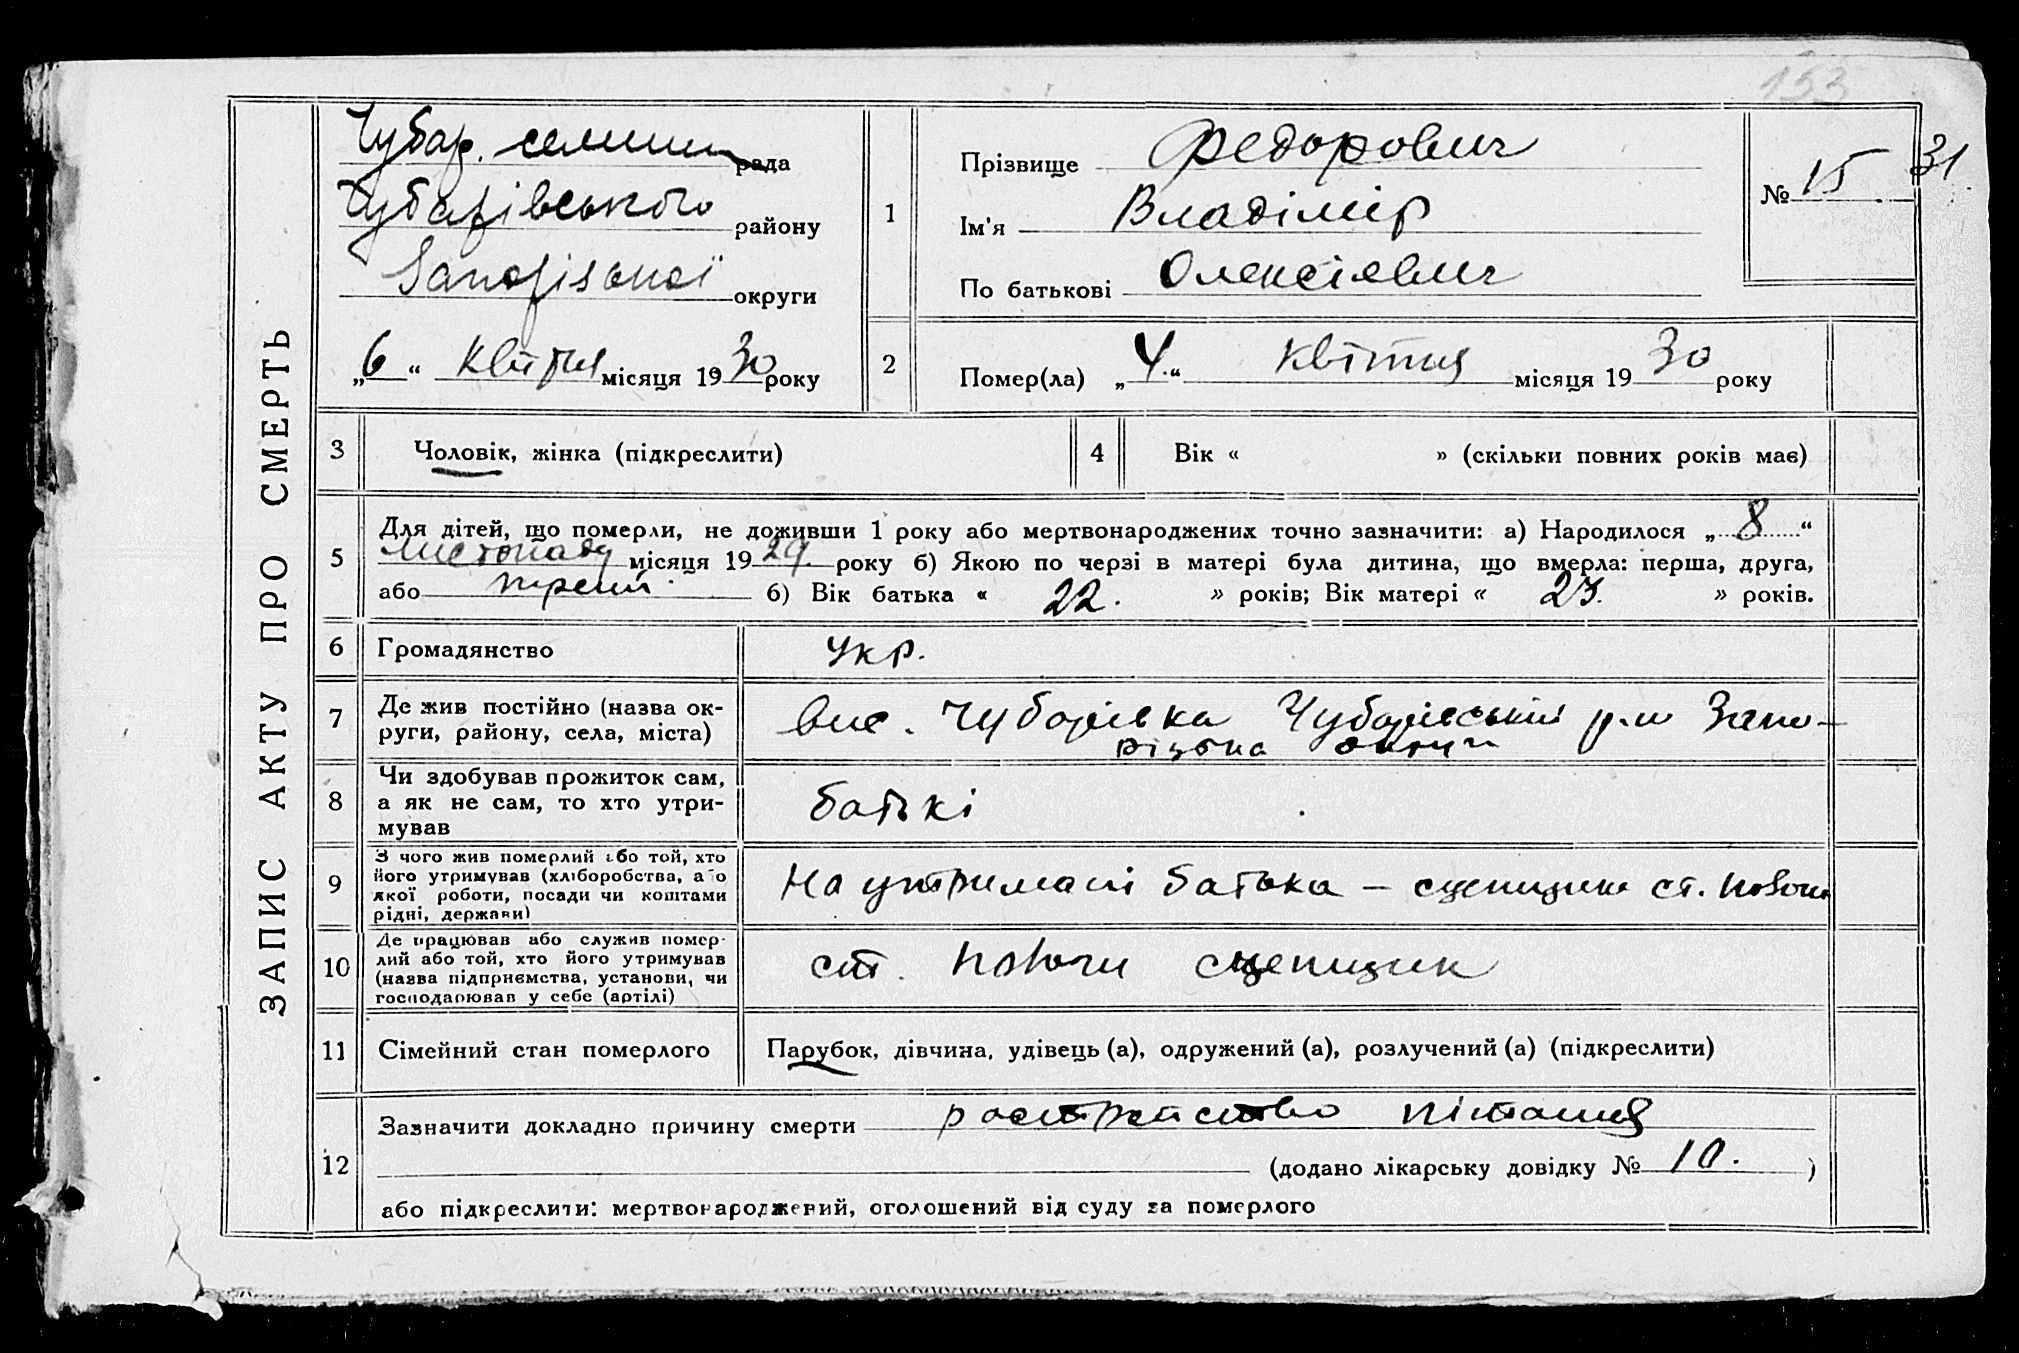 133
ЗАПИС АКТУ ПРО СМЕРТЬ
Чубар. селищн рада
Чубарівського району
Запорізької округи
„6“ Квітня місяця 1930 року
1
Прізвище Федорович
Ім'я Владімір
По батькові Олексієвич
№ 15 31
2
Помер(ла) „4.“ Квітня місяця 1930 року
3 Чоловік, жінка (підкреслити)
4 Вік « » (скільки повних років має)
5 Для дітей, що померли, не доживши 1 року або мертвонароджених точно зазначити: а) Народилося „8“
листопаду місяця 1929. року б) Якою по черзі в матері була дитина, що вмерла: перша, друга,
або третій. б) Вік батька « 22. » років; Вік матері « 23. » років.
6 Громадянство Укр.
7 Де жив постійно (назва ок-
руги, району, села, міста)
вис. Чубарівка Чубарівський р-н Запо-
різька округи
8 Чи здобував прожиток сам,
а як не сам, то хто утри-
мував
батькі
9 З чого жив померлий або той, хто
його утримував (хліборобства, або
якої роботи, посади чи коштами
рідні, держави)
На утримані батька – сцепщик ст. Пологи
10 Де працював або служив помер-
лий або той, хто його утримував
(назва підприємства, установи, чи
господарював у себе (артілі)
ст. Пологи сцепщик
11 Сімейний стан померлого Парубок, дівчина, удівець (а), одружений (а), розлучений (а) (підкреслити)
12 Зазначити докладно причину смерти расстройство пітания
(додано лікарську довідку № 10. )
або підкреслити: мертвонароджений, оголошений від суду за померлого